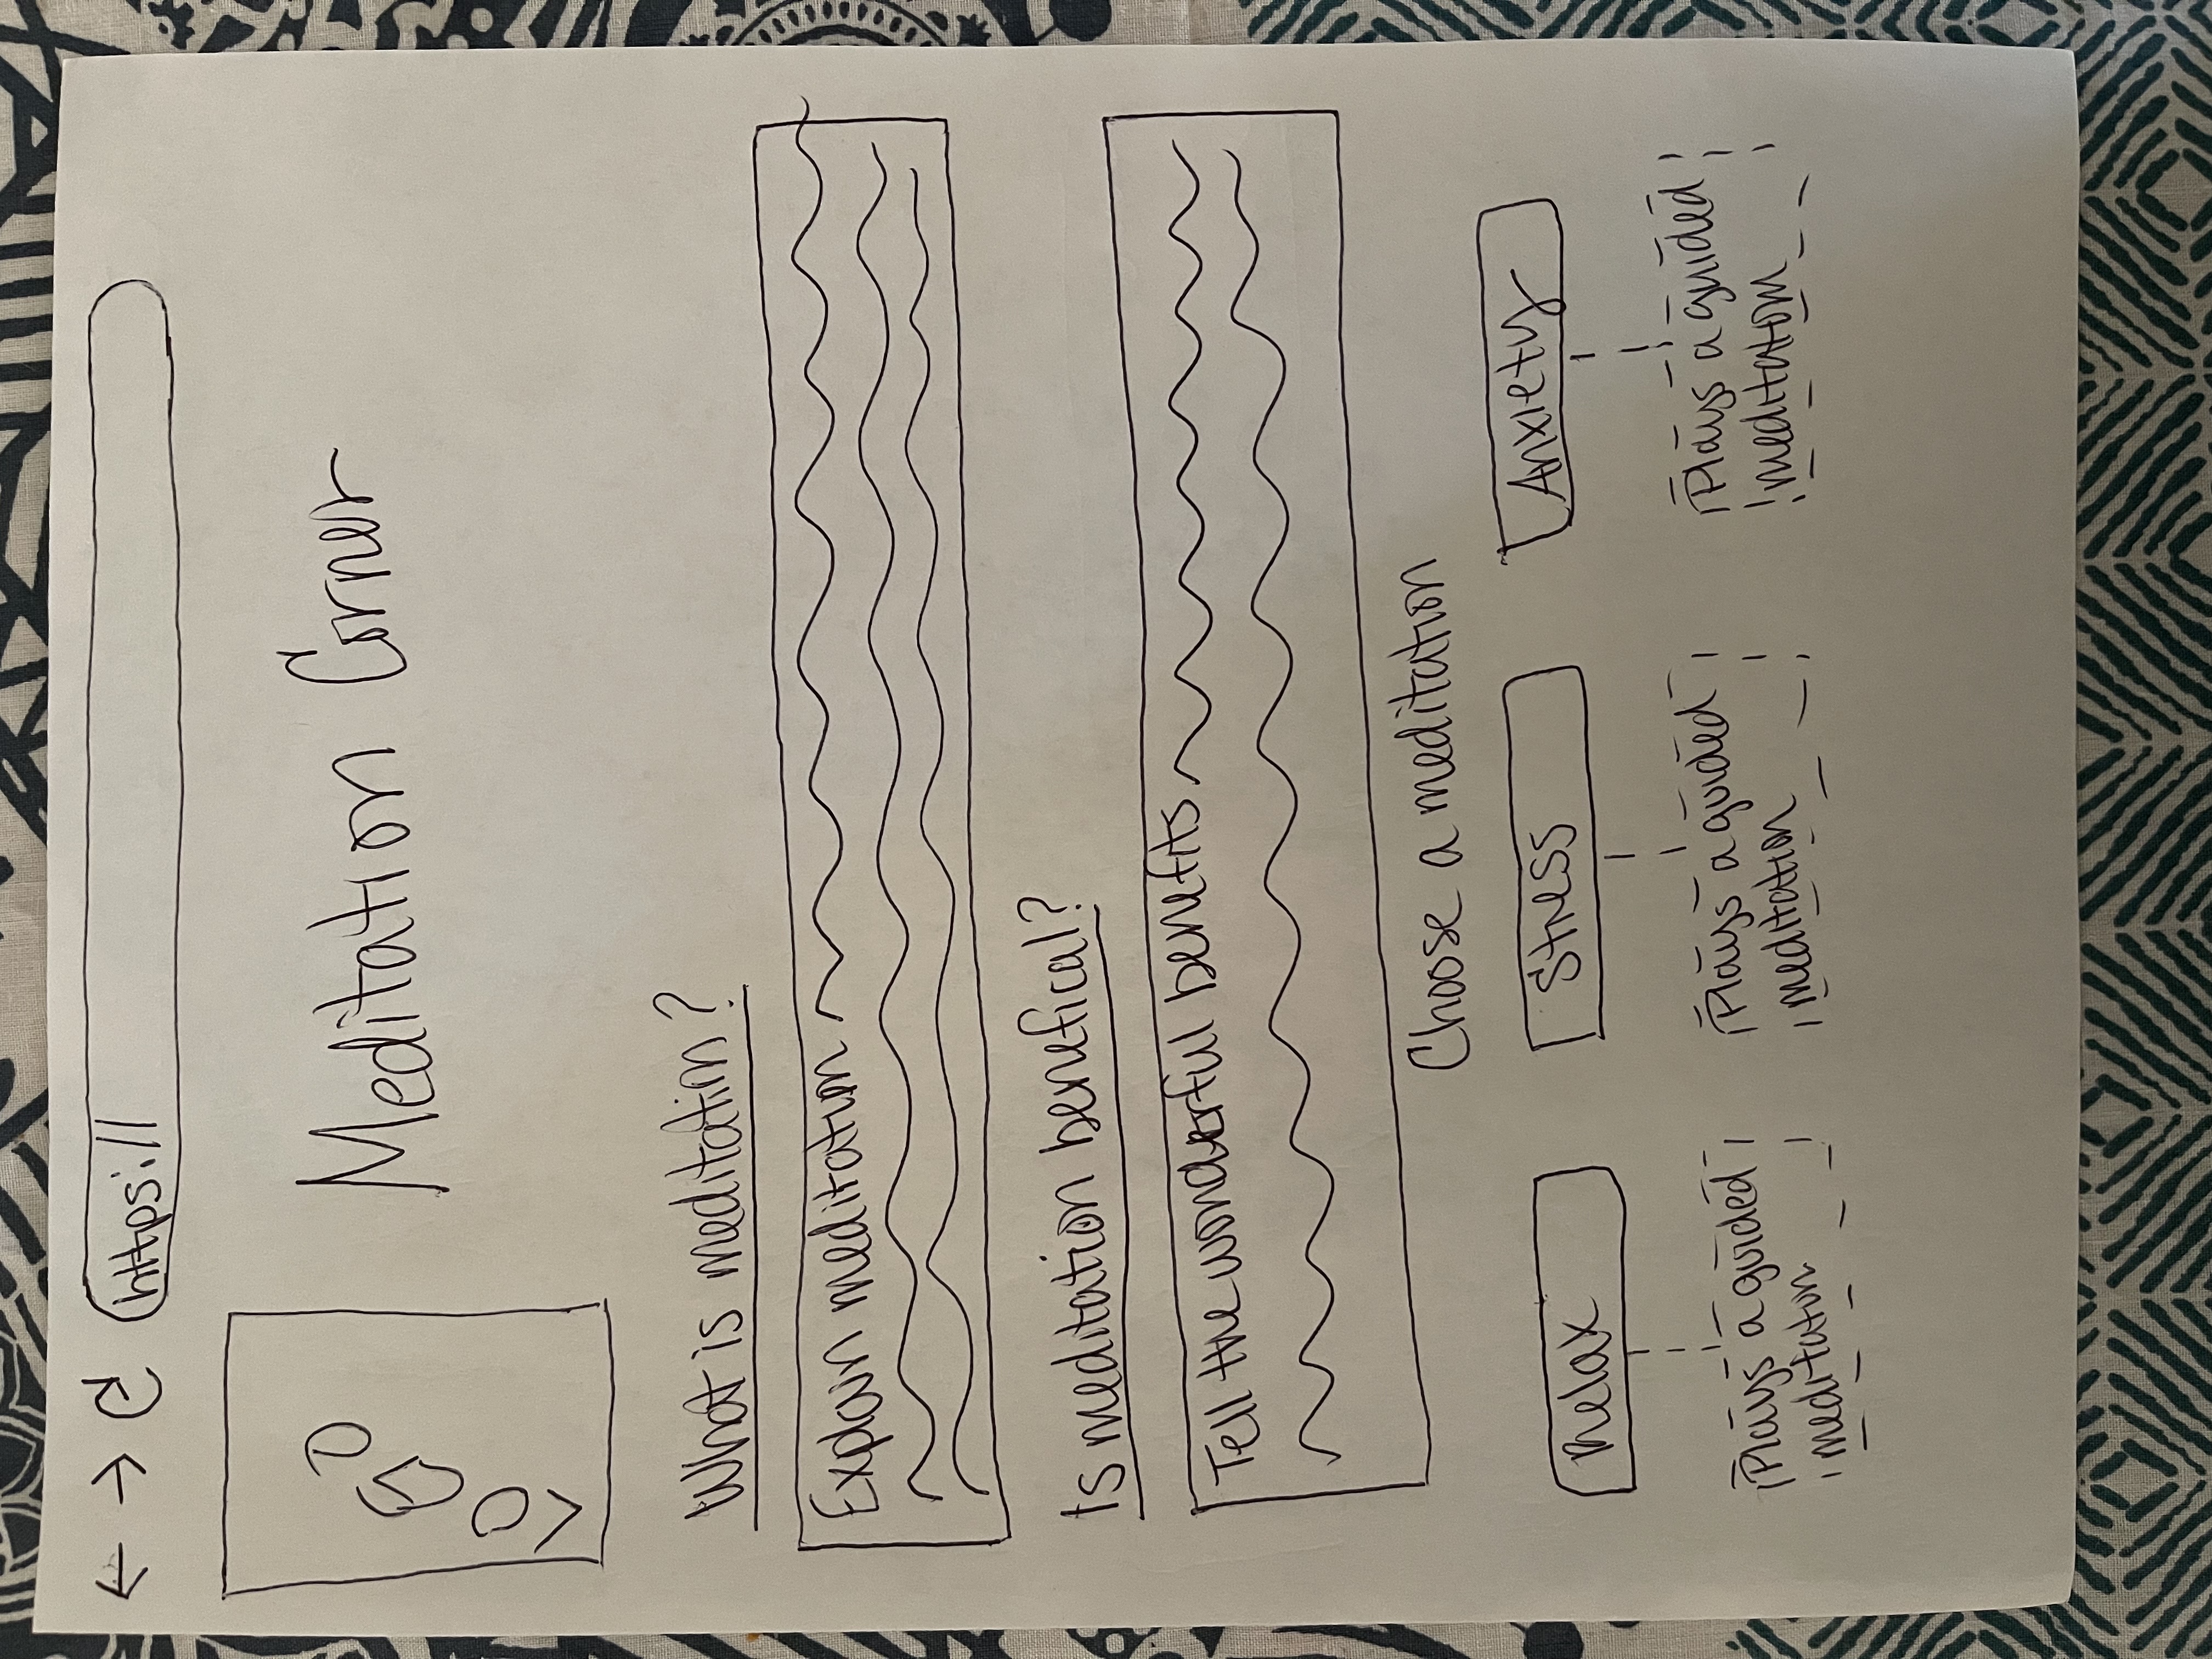 https://
LOGO
Meditation Corner
What is meditation?
Explain meditation
Is meditation benefical?
Tell the wonderful benefits
Choose a meditation
Relax
Stress
Anxiety
Plays a guided
meditation
Plays a guided
meditation
Plays a guided
meditation